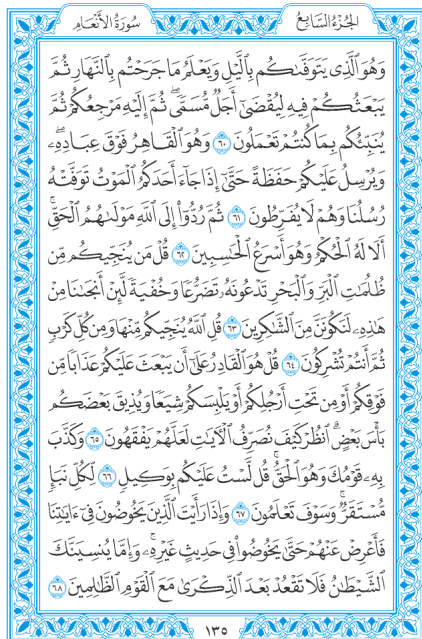 سُورَةُ الأَنْعَامِ
الجُزْءُ السَّابِعُ
وَهُوَ ٱلَّذِى يَتَوَفَّىٰكُم بِٱلَّيْلِ وَيَعْلَمُ مَا جَرَحْتُم بِٱلنَّهَارِ ثُمَّ
يَبْعَثُكُمْ فِيهِ لِيُقْضَىٰٓ أَجَلٌ مُّسَمًّى ۖ ثُمَّ إِلَيْهِ مَرْجِعُكُمْ ثُمَّ
يُنَبِّئُكُم بِمَا كُنتُمْ تَعْمَلُونَ ٦٠ وَهُوَ ٱلْقَاهِرُ فَوْقَ عِبَادِهِۦ ۖ
وَيُرْسِلُ عَلَيْكُمْ حَفَظَةً حَتَّىٰٓ إِذَا جَآءَ أَحَدَكُمُ ٱلْمَوْتُ تَوَفَّتْهُ
رُسُلُنَا وَهُمْ لَا يُفَرِّطُونَ ٦١ ثُمَّ رُدُّوٓا۟ إِلَى ٱللَّهِ مَوْلَىٰهُمُ ٱلْحَقِّ ۚ
أَلَا لَهُ ٱلْحُكْمُ وَهُوَ أَسْرَعُ ٱلْحَٰسِبِينَ ٦٢ قُلْ مَن يُنَجِّيكُم مِّن
ظُلُمَٰتِ ٱلْبَرِّ وَٱلْبَحْرِ تَدْعُونَهُۥ تَضَرُّعًا وَخُفْيَةً لَّئِنْ أَنجَىٰنَا مِنْ
هَٰذِهِۦ لَنَكُونَنَّ مِنَ ٱلشَّٰكِرِينَ ٦٣ قُلِ ٱللَّهُ يُنَجِّيكُم مِّنْهَا وَمِن كُلِّ كَرْبٍ
ثُمَّ أَنتُمْ تُشْرِكُونَ ٦٤ قُلْ هُوَ ٱلْقَادِرُ عَلَىٰٓ أَن يَبْعَثَ عَلَيْكُمْ عَذَابًا مِّن
فَوْقِكُمْ أَوْ مِن تَحْتِ أَرْجُلِكُمْ أَوْ يَلْبِسَكُمْ شِيَعًا وَيُذِيقَ بَعْضَكُم
بَأْسَ بَعْضٍ ۗ ٱنظُرْ كَيْفَ نُصَرِّفُ ٱلْءَايَٰتِ لَعَلَّهُمْ يَفْقَهُونَ ٦٥ وَكَذَّبَ
بِهِۦ قَوْمُكَ وَهُوَ ٱلْحَقُّ ۚ قُل لَّسْتُ عَلَيْكُم بِوَكِيلٍ ٦٦ لِّكُلِّ نَبَإٍ
مُّسْتَقَرٌّ ۚ وَسَوْفَ تَعْلَمُونَ ٦٧ وَإِذَا رَأَيْتَ ٱلَّذِينَ يَخُوضُونَ فِىٓ ءَايَٰتِنَا
فَأَعْرِضْ عَنْهُمْ حَتَّىٰ يَخُوضُوا۟ فِى حَدِيثٍ غَيْرِهِۦ ۚ وَإِمَّا يُنسِيَنَّكَ
ٱلشَّيْطَٰنُ فَلَا تَقْعُدْ بَعْدَ ٱلذِّكْرَىٰ مَعَ ٱلْقَوْمِ ٱلظَّٰلِمِينَ ٦٨
١٣٥